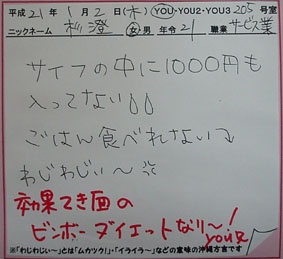 平成21年1月2日(木) YOU・YOU2・YOU3 205号室
ニックネーム 杉澄 女・男 年令21 職業 サービス業
サイフの中に1000円も
入ってない
ごはん食べれない
わじわじぃ〜
効果てき面の
ビンボーダイエットなり〜!
YOUより
※「わじわじぃ〜」とは「ムカツク!」・「イライラ〜」などの意味の沖縄方言です